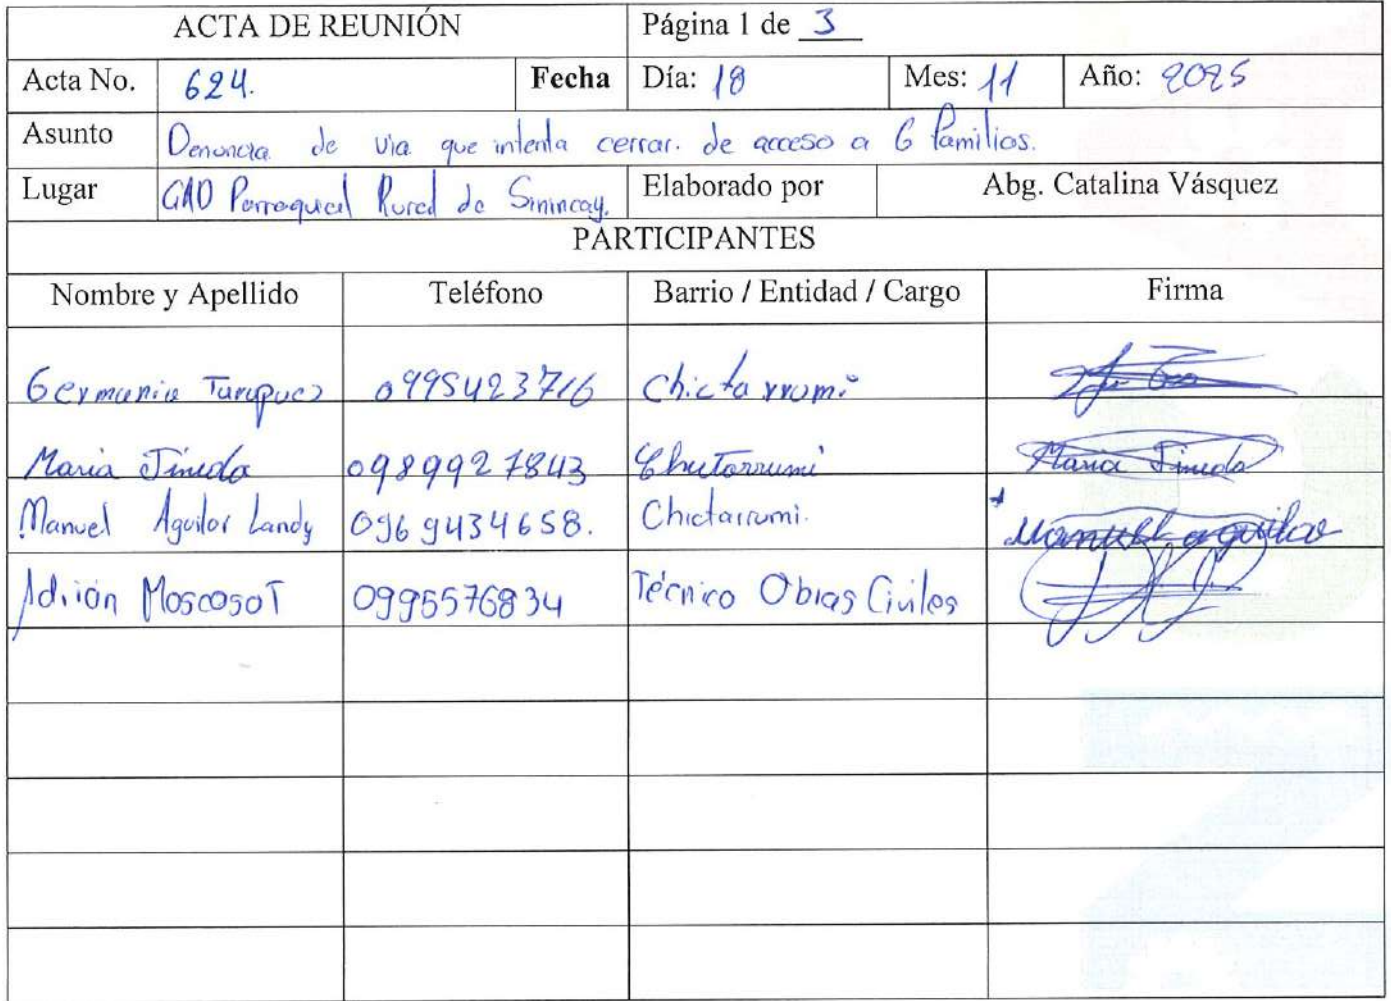 ACTA DE REUNIÓN Página 1 de 3
Acta No. 624. Fecha Día: 18 Mes: 11 Año: 2025
Asunto Denuncia de via que intenta cerrar. de acceso a 6 familias.
Lugar GAD Parroquial Rural de Sinincay. Elaborado por Abg. Catalina Vásquez
PARTICIPANTES
Nombre y Apellido Teléfono Barrio / Entidad / Cargo Firma
Germania 0995423716 Chictarrumi
Maria Tineda 0989927843 Chictarrumi Maria Tineda
Manuel Aguilar Landy 0969434658. Chictarrumi. Manuel aguilar
Adrián Moscoso T 0995576834 Técnico Obras Civiles